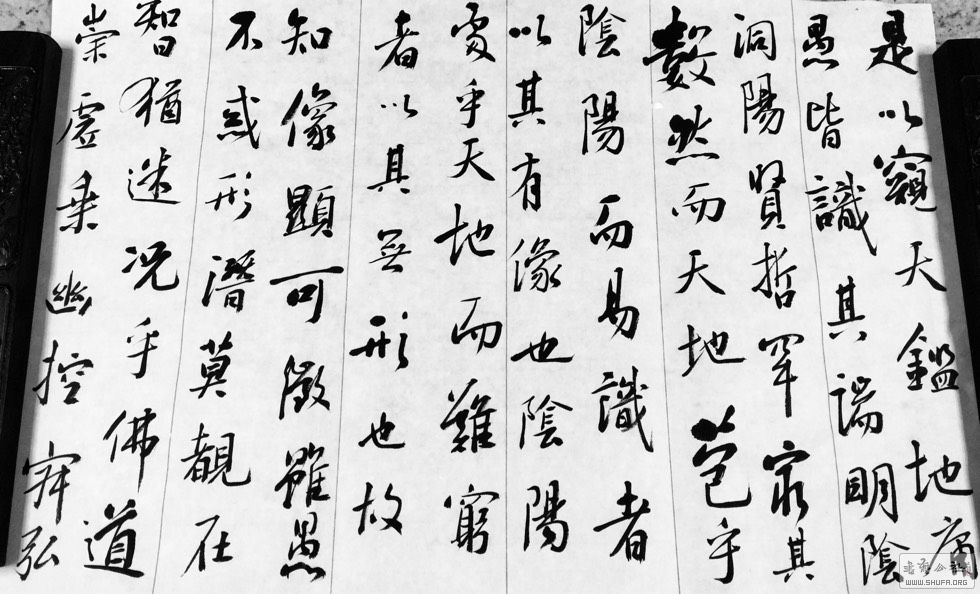 是以窺天鑑地庸
愚皆識其端明陰
洞陽賢哲罕窮其
數然而天地苞乎
陰陽而易識者
以其有像也陰陽
處乎天地而難窮
者以其無形也故
知像顯可徵雖愚
不惑形潛莫覩在
智猶迷况乎佛道
崇虛乘幽控寂弘
WWW.SHUFA.ORG